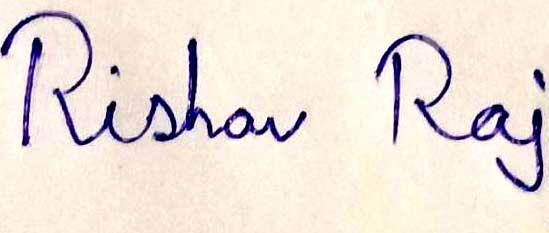 Rishav Raj